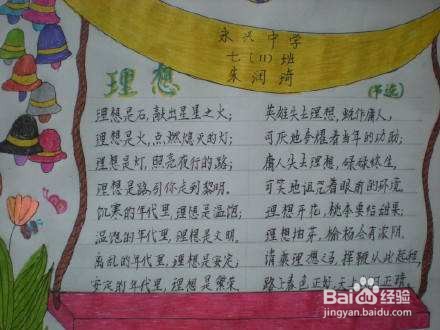 永兴中学
七(11)班
朱润琦
理想
(节选)
理想是石,敲出星星之火;
理想是火,点燃熄灭的灯;
理想是灯,照亮夜行的路;
理想是路,引你走到黎明。
饥寒的年代里,理想是温饱;
温饱的年代里,理想是文明。
离乱的年代里,理想是安定;
安定的年代里,理想是繁荣。
英雄失去理想,蜕作庸人,
可厌地夸耀着当年的功勋;
庸人失去理想,碌碌终生,
可笑地诅咒着眼前的环境。
理想开花,桃李要结甜果;
理想抽芽,榆杨会有浓阴。
请乘理想之马,挥鞭从此起程,
路上春色正好,天上 正晴
Baidu经验
jingyan.baidu.com